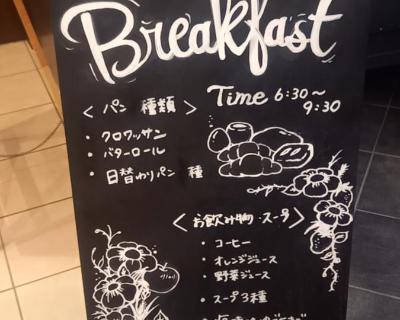 Breakfast
Time 6:30〜
9:30
< パン 種類 >
・クロワッサン
・バターロール
・日替わりパン 種
< お飲み物・スープ >
・コーヒー
・オレンジジュース
・野菜ジュース
・スープ3種